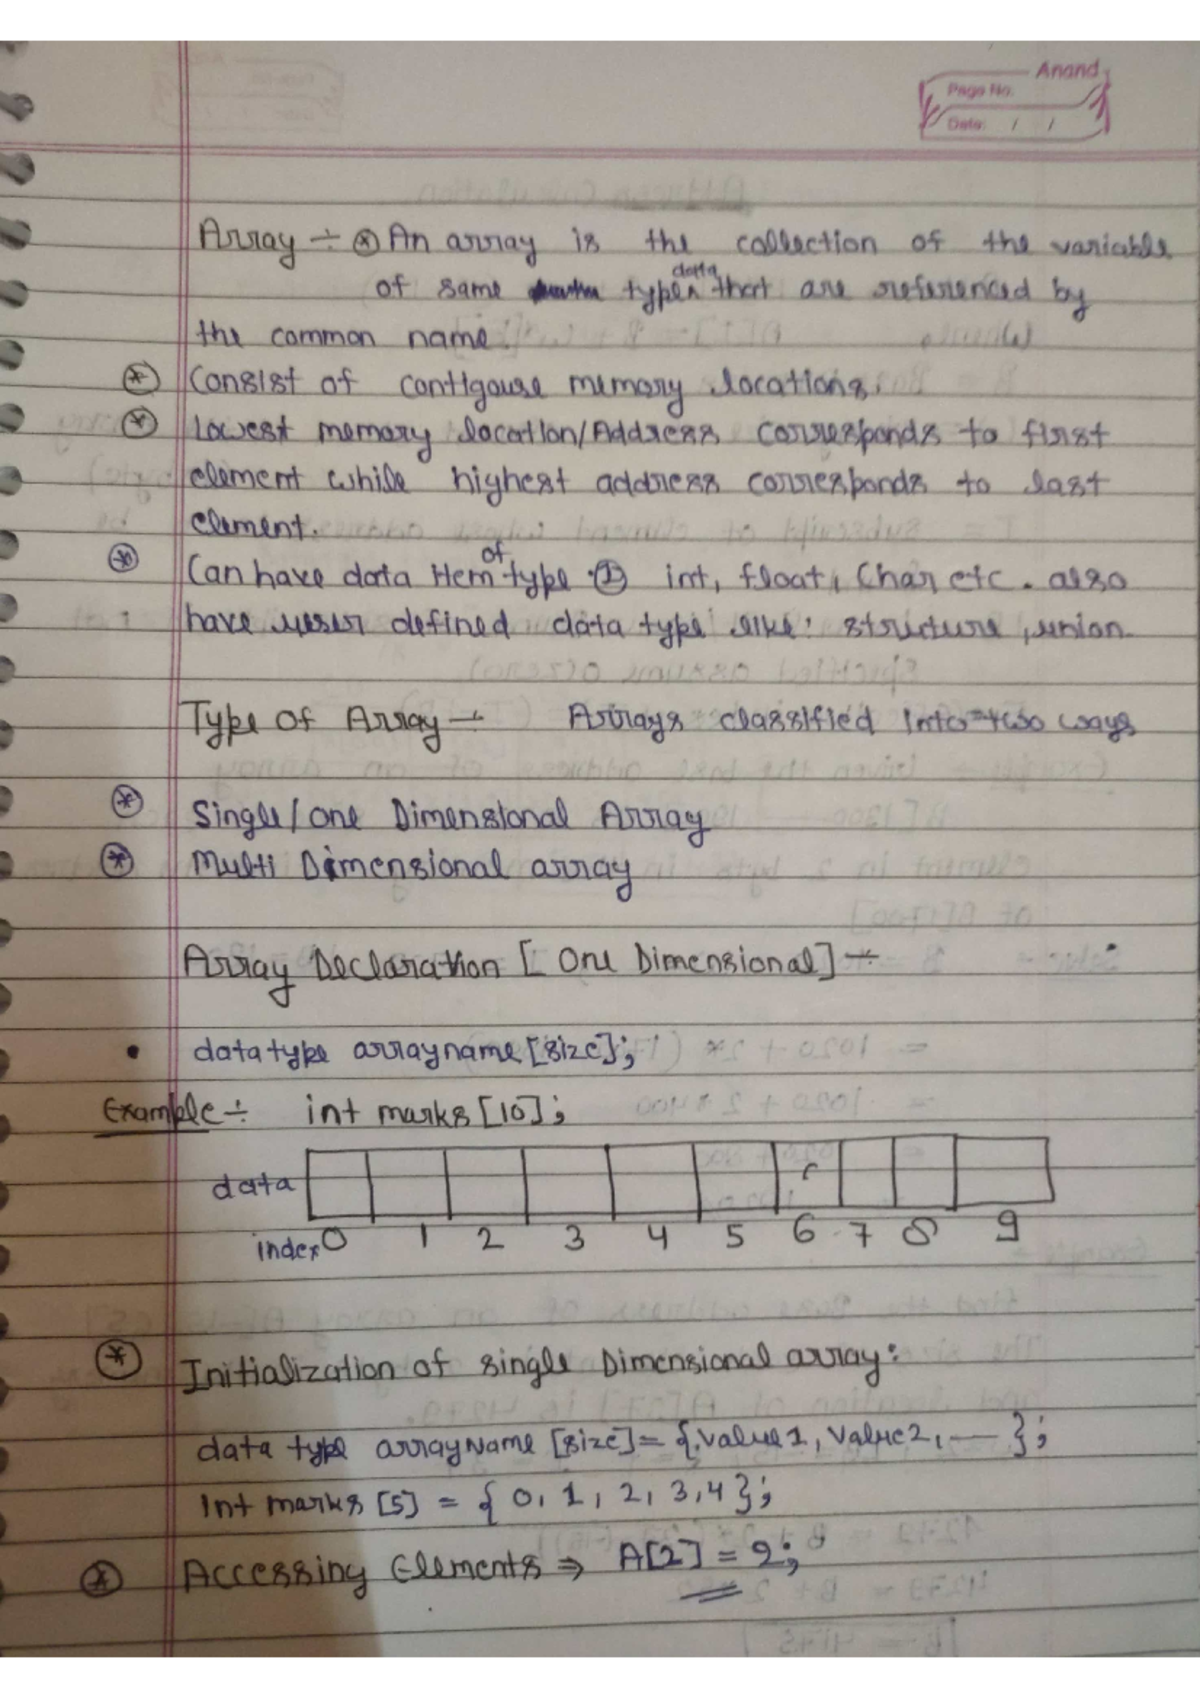 Anand
Page No.
Date: / /
Array ÷ ⊛ An array is the collection of the variable
of same type data that are referenced by
the common name.
⊛ Consist of contigouse memory locations.
⊛ Lowest memory location/Address corresponds to first
element while highest address corresponds to last
element.
⊛ Can have data item of type ① int, float, Char etc. also
have user defined data type like: stricture, union.
Type Of Array ÷ Arrays classified into two ways
⊛ Single/one Dimensional Array
⊛ Multi Dimensional array
Array Declaration [One Dimensional] ÷
• datatype arrayname[size];
Example ÷ int marks[10];
data
index 0 1 2 3 4 5 6 7 8 9
⊛ Initialization of single Dimensional array:
data type arrayName [size] = {value1, value2, — };
Int marks [5] = { 0, 1, 2, 3, 4 };
⊛ Accessing Elements ⇒ A[2] = 2;